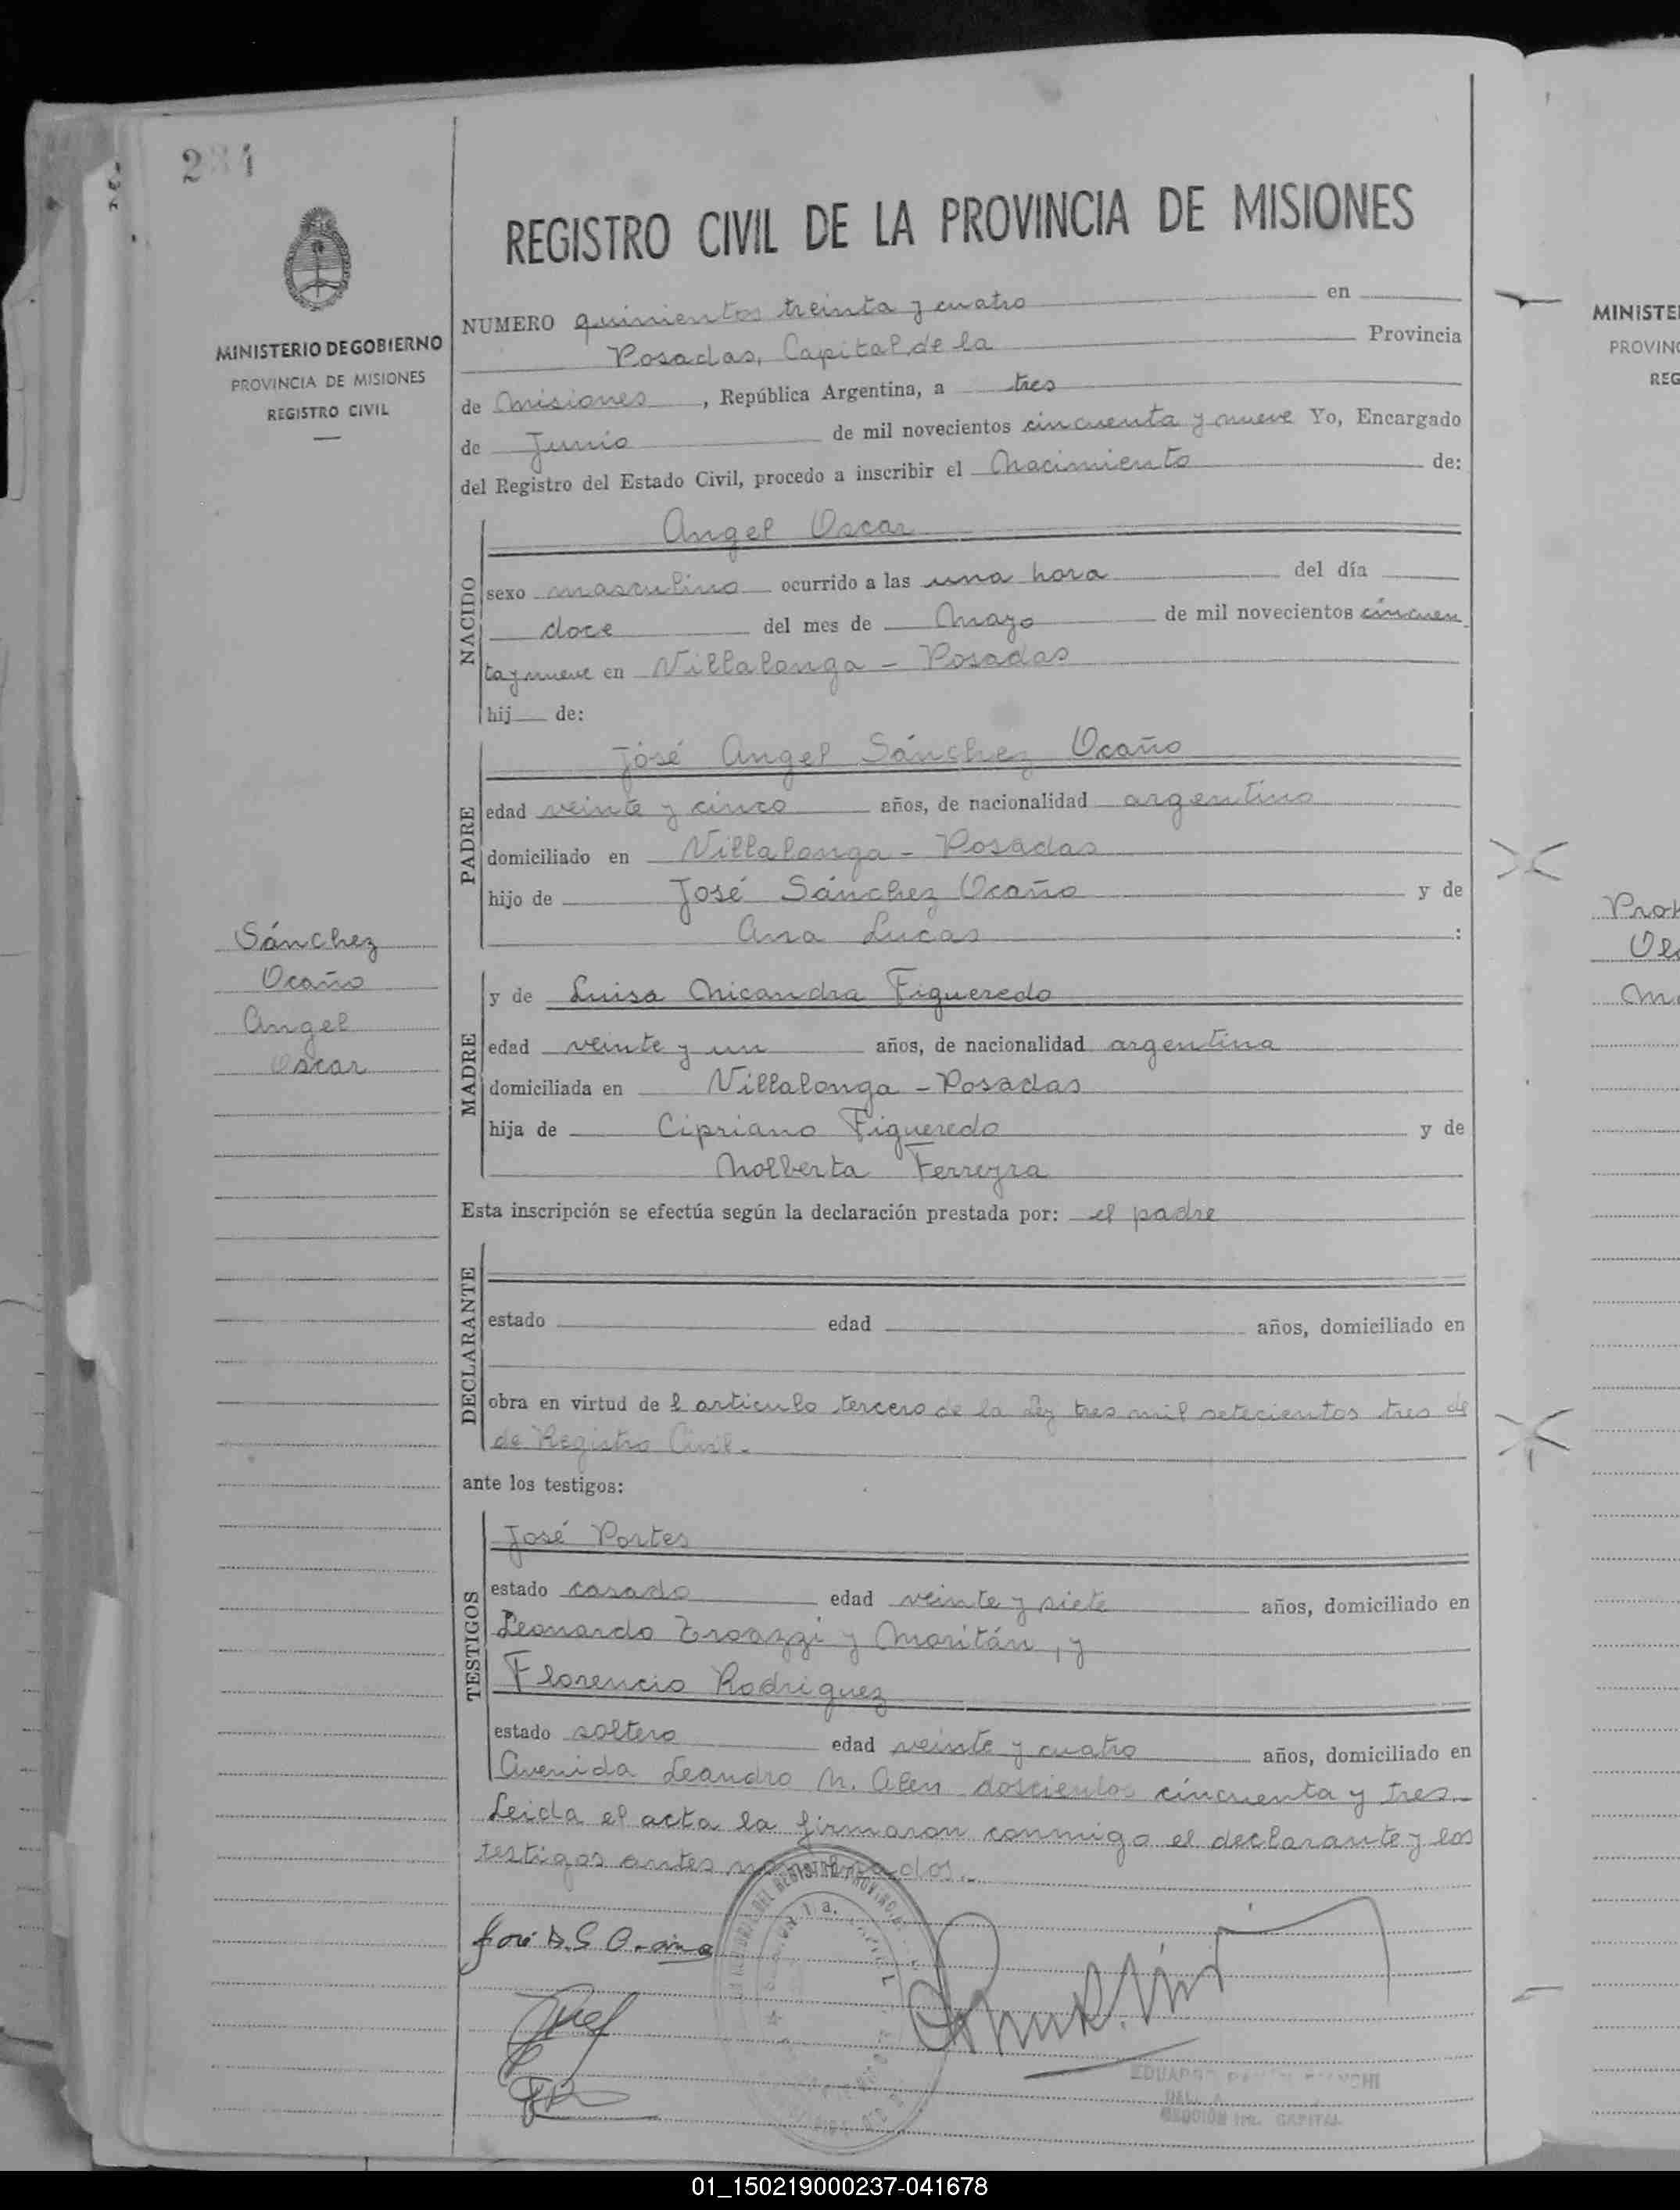 234
MINISTERIO DE GOBIERNO
PROVINCIA DE MISIONES
REGISTRO CIVIL
REGISTRO CIVIL DE LA PROVINCIA DE MISIONES
NUMERO quinientos treinta y cuatro en
Posadas, Capital de la Provincia
de Misiones, República Argentina, a tres
de Junio de mil novecientos cincuenta y nueve Yo, Encargado
del Registro del Estado Civil, procedo a inscribir el Nacimiento de:
NACIDO
Angel Oscar
sexo masculino ocurrido a las una hora del día
doce del mes de Mayo de mil novecientos cincuen
ta y nueve en Villalonga - Posadas
hij de:
PADRE
José Angel Sánchez Ocaño
edad veinte y cinco años, de nacionalidad argentino
domiciliado en Villalonga - Posadas
hijo de José Sánchez Ocaño y de
Ana Lucas :
Sánchez
Ocaño
Angel
Oscar
MADRE
y de Luisa Nicandra Figueredo
edad veinte y un años, de nacionalidad argentina
domiciliada en Villalonga - Posadas
hija de Cipriano Figueredo y de
Nolberta Ferreyra
Esta inscripción se efectúa según la declaración prestada por: el padre
DECLARANTE
estado edad años, domiciliado en
obra en virtud de l articulo tercero de la Ley tres mil setecientos tres de
de Registro Civil.
ante los testigos:
TESTIGOS
José Portes
estado casado edad veinte y siete años, domiciliado en
Leonardo y Moritán, y
Florencio Rodriguez
estado soltero edad veinte y cuatro años, domiciliado en
Avenida Leandro N. Alen doscientos cincuenta y tres.-
Leida el acta la firmaron conmigo el declarante y los
testigos antes nombrados.-
José A. S. Ocaña
EDUARDO RAMÓN BIANCHI
SECCIÓN CAPITAL
MINISTE
PROVINC
REG
01_150219000237-041678